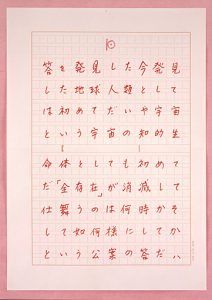 答を発見した今発見
した地球人類として
は初めてだいや宇宙
という宇宙の知的生
命体としても初めて
だ「全存在」が消滅して
仕舞うのは何時かそ
して如何様にしてか
という公案の答だハ